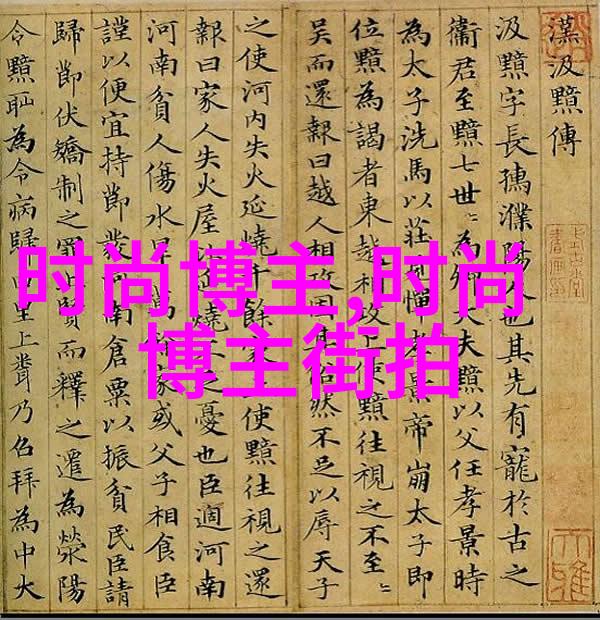 漢汲黯傳
汲黯字長孺濮陽人也其先有寵於古之
衞君至黯七世〻為卿大夫黯以父任孝景時
為太子洗馬以莊見憚孝景帝崩太子即
位黯為謁者東越相攻上使黯往視之不至〻
吳而還報曰越人相攻固其俗然不足以辱天子
之使河內失火延燒千餘家上使黯往視之還
報曰家人失火屋比延燒之憂也臣適河南
河南貧人傷水旱萬餘家或父子相食臣
謹以便宜持節發河南倉粟以振貧民臣請
歸節伏矯制之罪上賢而釋之遷為滎陽
令黯恥為令病歸田里上聞乃召拜為中大
时尚博主,时尚
博主街拍